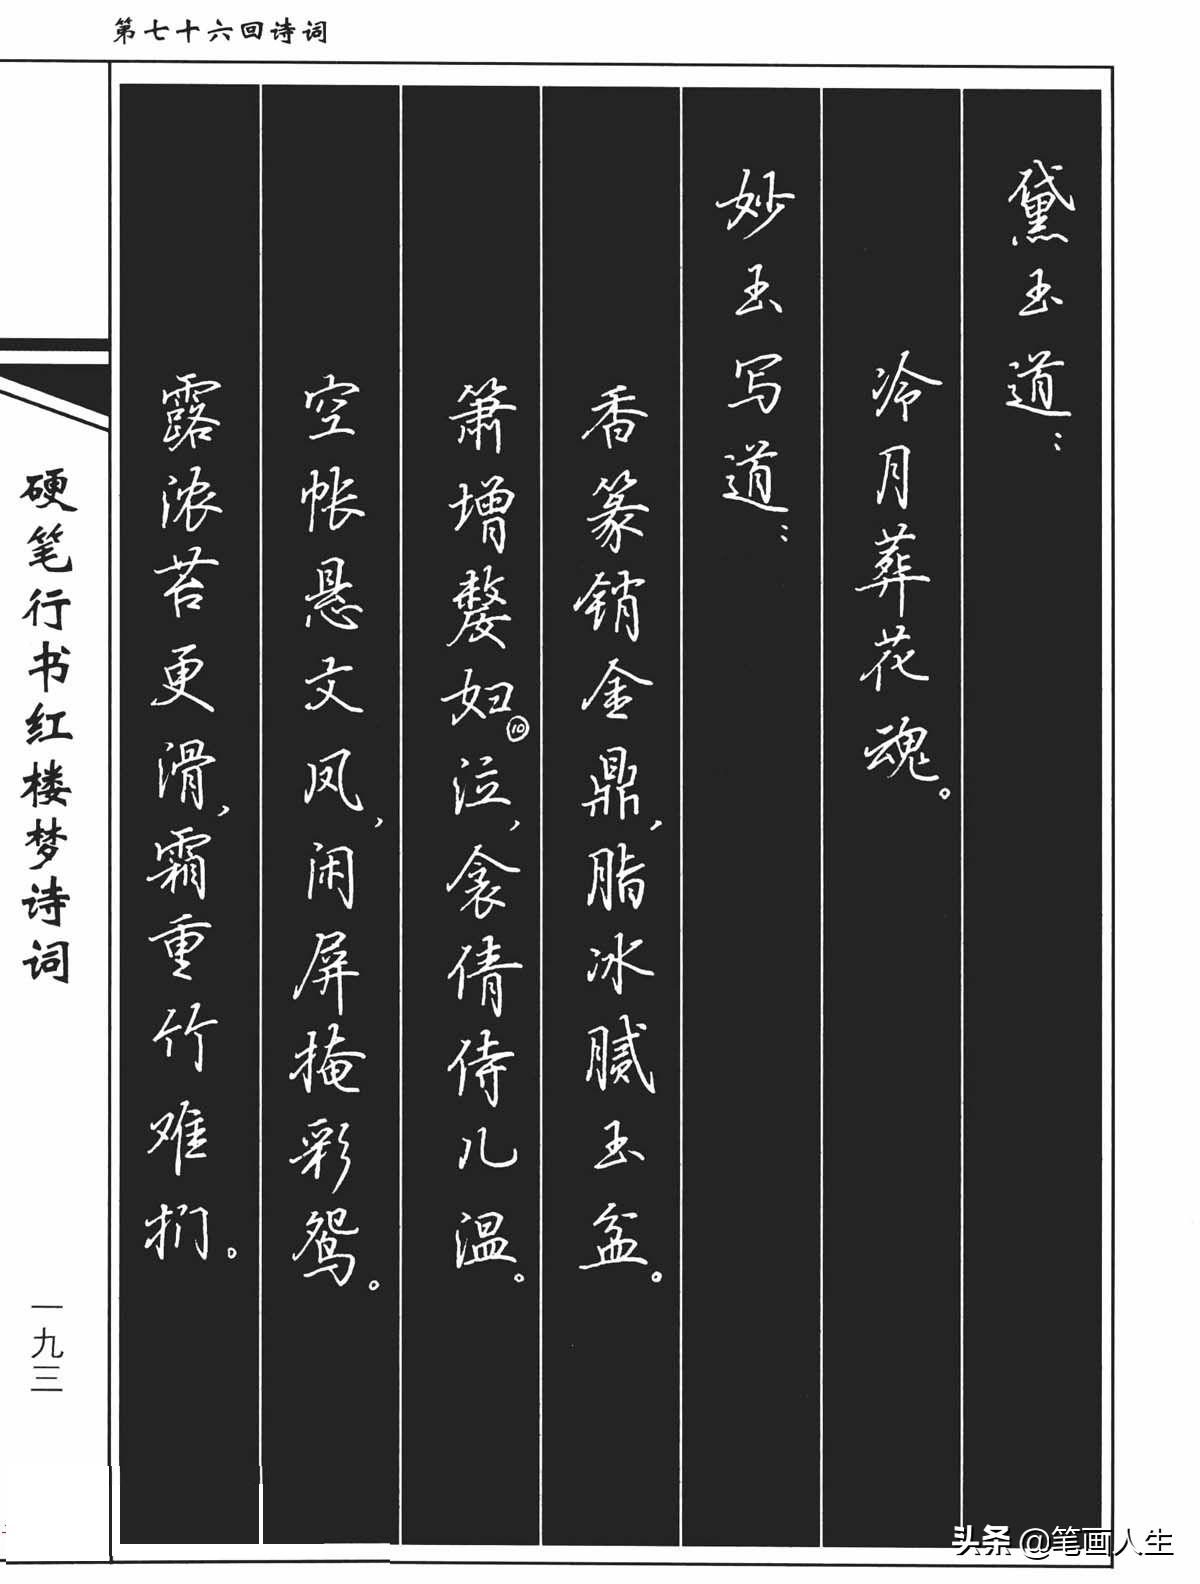 第七十六回诗词
黛玉道：
冷月葬花魂。
妙玉写道：
香篆销金鼎，脂冰腻玉盆。
箫增嫠妇⑩泣，衾倩侍儿温。
空帐悬文凤，闲屏掩彩鸳。
露浓苔更滑，霜重竹难扪。
硬笔行书红楼梦诗词
一九三
头条 @笔画人生